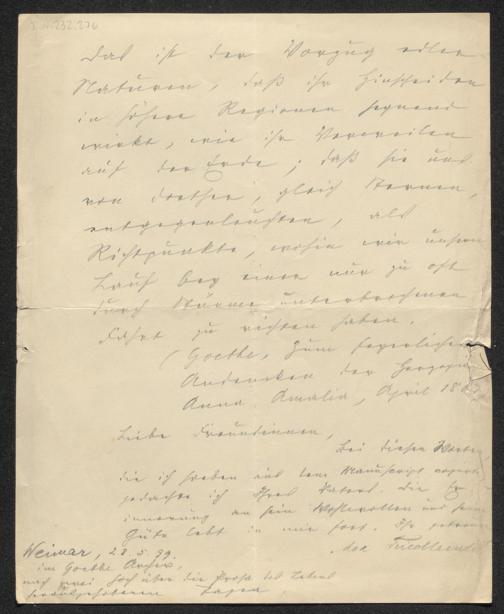 I.N. 232.276
Das ist der Vorzug edler
Naturen, daß ihr Hinscheiden
in höhere Regionen segnend
wirkt, wie ihr Verweilen
auf der Erde; daß sie uns
von dorther, gleich Sternen,
entgegenleuchten, als
Richtpunkte, wohin wir unsern
Lauf bey einer nur zu oft
durch Stürme unterbrochenen
Fahrt zu richten haben.
(Goethe, Zum feyerlichen
Andenken der Herzogin
Anna Amalia, April 18
Liebe Freundinnen,
Bei diesen Worten,
die ich soeben aus dem Manuscript
gedachte ich Ihres Vaters. Die Er
innerung an sein Wohlwollen und seine
Güte lebt in mir fort. Ihr
Weimar, 28.5.99.
im Goethe Archiv,